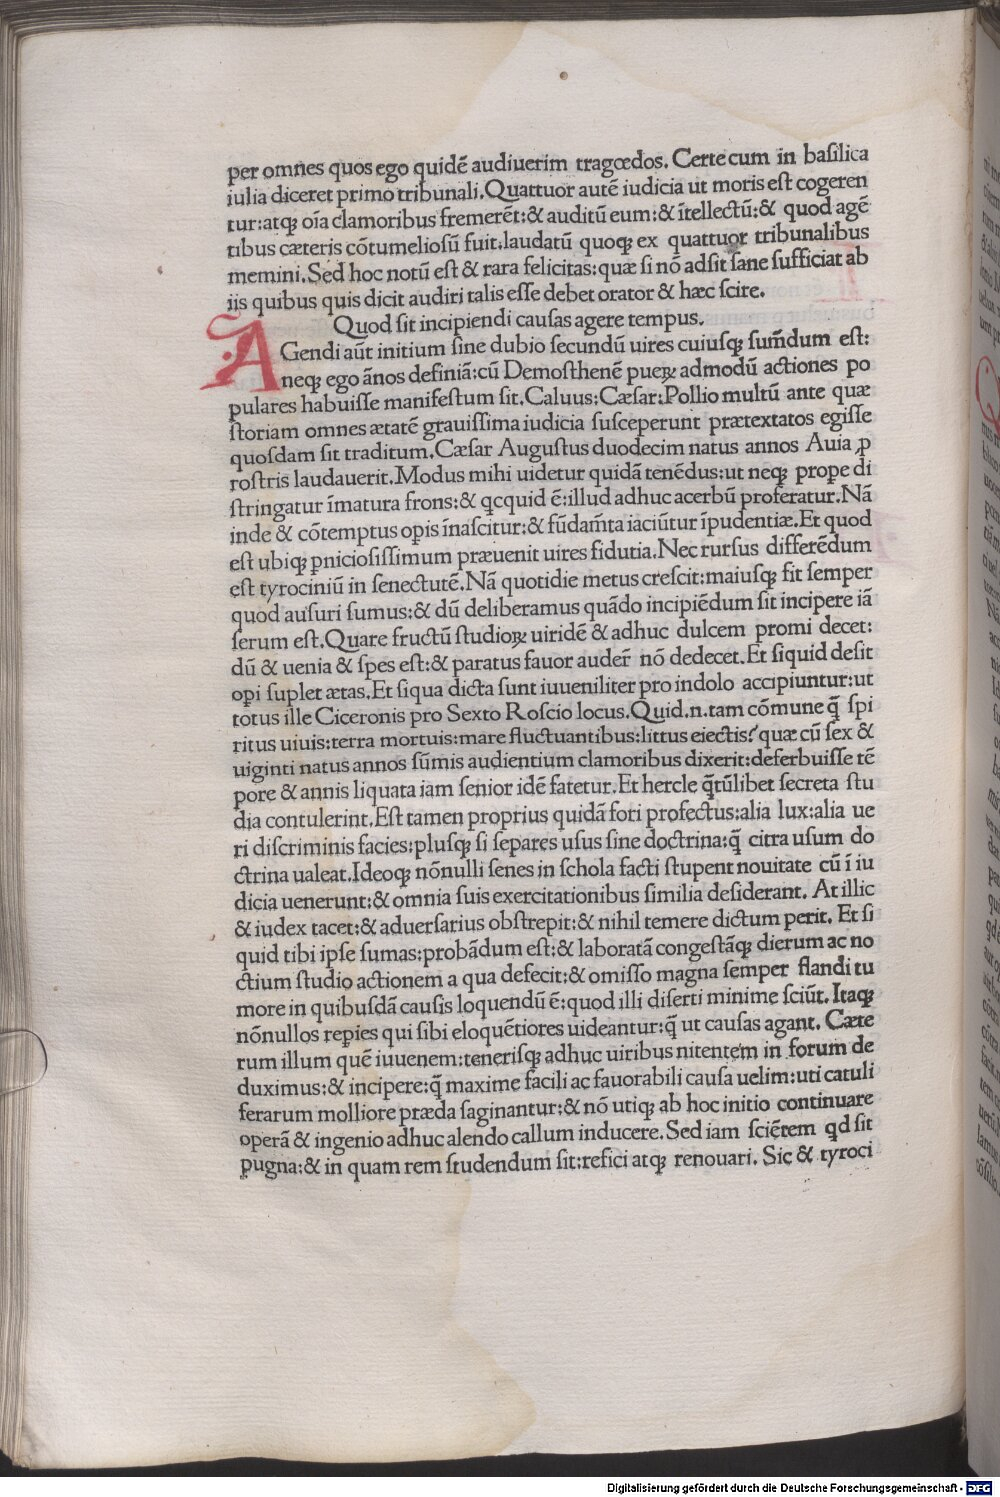 per omnes quos ego quidē audiuerim tragœdos. Certe cum in baſilica
iulia diceret primo tribunali. Quattuor autē iudicia ut moris eſt cogeren
tur: atqꝫ oīa clamoribus fremerēt: & auditū eum: & ītellectū: & quod agē
tibus cæteris cōtumelioſū fuit. laudatū quoqꝫ ex quattuor tribunalibus
memini. Sed hoc notū eſt & rara felicitas: quæ ſi nō adſit ſane ſufficiat ab
iis quibus quis dicit audiri talis eſſe debet orator & hæc ſcire.
Quod ſit incipiendi cauſas agere tempus.
AGendi aūt initium ſine dubio ſecundū uires cuiuſqꝫ ſum̄dum eſt:
neqꝫ ego ānos definiā: cū Demoſthenē pueꝝ admodū actiones po
pulares habuiſſe manifeſtum ſit. Caluus: Cæſar: Pollio multū ante quæ
ſtoriam omnes ætatē grauiſſima iudicia ſuſceperunt prætextatos egiſſe
quoſdam ſit traditum. Cæſar Auguſtus duodecim natus annos Auiā ꝓ
roſtris laudauerit. Modus mihi uidetur quidā tenēdus: ut neqꝫ prope di
ſtringatur īmatura frons: & qcquid ē: illud adhuc acerbū proferatur. Nā
inde & cōtemptus opis īnaſcitur: & fūdam̄ta iaciūtur īpudentiæ. Et quod
eſt ubiqꝫ ꝑnicioſiſſimum præuenit uires fidutia. Nec rurſus differēdum
eſt tyrociniū in ſenectutē. Nā quotidie metus creſcit: maiuſqꝫ fit ſemper
quod auſuri ſumus: & dū deliberamus quādo incipiēdum ſit incipere iā
ſerum eſt. Quare fructū ſtudioꝝ uiridē & adhuc dulcem promi decet:
dū & uenia & ſpes eſt: & paratus fauor auder̄ nō dedecet. Et ſiquid deſit
opi ſuplet ætas. Et ſiqua dicta ſunt iuueniliter pro indolo accipiuntur: ut
totus ille Ciceronis pro Sexto Roſcio locus. Quid .n. tam cōmune q̄ ſpi
ritus uiuis: terra mortuis: mare fluctuantibus: littus eiectis? quæ cū ſex &
uiginti natus annos ſūmis audientium clamoribus dixerit: deferbuiſſe tē
pore & annis liquata iam ſenior idē fatetur. Et hercle q̄tūlibet ſecreta ſtu
dia contulerint. Eſt tamen proprius quidā fori profectus: alia lux: alia ue
ri diſcriminis facies: pluſqꝫ ſi ſepares uſus ſine doctrina: q̄ citra uſum do
ctrina ualeat. Ideoqꝫ nōnulli ſenes in ſchola facti ſtupent nouitate cū ī iu
dicia uenerunt: & omnia ſuis exercitationibus ſimilia deſiderant. At illic
& iudex tacet: & aduerſarius obſtrepit: & nihil temere dictum perit. Et ſi
quid tibi ipſe ſumas: probādum eſt: & laboratā congeſtāqꝫ dierum ac no
ctium ſtudio actionem a qua defecit: & omiſſo magna ſemper flandi tu
more in quibuſdā cauſis loquendū ē: quod illi diſerti minime ſciūt. Itaqꝫ
nōnullos repies qui ſibi eloquētiores uideantur: q̄ ut cauſas agant. Cæte
rum illum quē iuuenem: teneriſqꝫ adhuc uiribus nitentem in forum de
duximus: & incipere: q̄ maxime facili ac fauorabili cauſa uelim: uti catuli
ferarum molliore præda ſaginantur: & nō utiqꝫ ab hoc initio continuare
operā & ingenio adhuc alendo callum inducere. Sed iam ſciētem qd ſit
pugna: & in quam rem ſtudendum ſit: refici atqꝫ renouari. Sic & tyroci
Digitalisierung gefördert durch die Deutsche Forschungsgemeinschaft - DFG